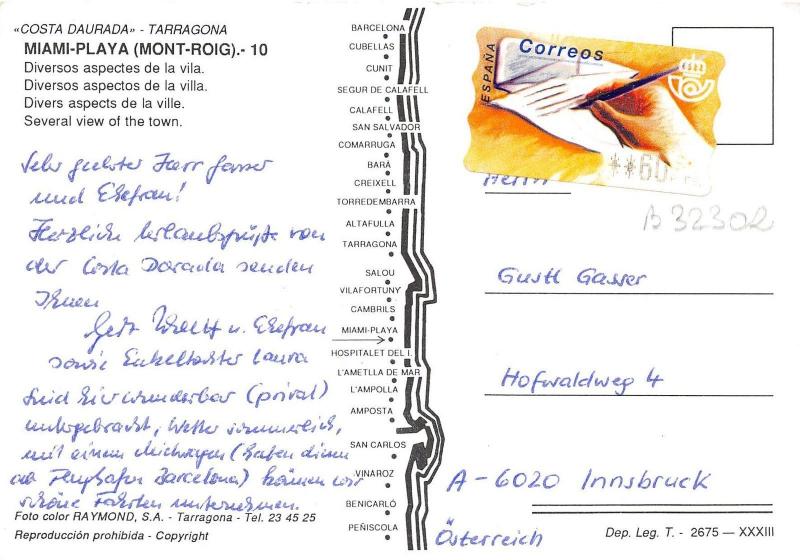 «COSTA DAURADA» - TARRAGONA
MIAMI-PLAYA (MONT-ROIG).- 10
Diversos aspectes de la vila.
Diversos aspectos de la villa.
Divers aspects de la ville.
Several view of the town.
Sehr geehrter Herr Gasser
und Ehefrau!
Herzliche Urlaubsgrüße von
der Costa Dorada senden
Ihnen
u. Ehefrau
sowie Enkeltochter Laura
Sind hier wunderbar (privat)
untergebracht, Wetter sommerlich,
mit einem Mietwagen (haben diesen
ab Flughafen Barcelona) können wir
schöne Fahrten unternehmen.
Foto color RAYMOND, S.A. - Tarragona - Tel. 23 45 25
Reproducción prohibida - Copyright
BARCELONA
CUBELLAS
CUNIT
SEGUR DE CALAFELL
CALAFELL
SAN SALVADOR
COMARRUGA
BARÁ
CREIXELL
TORREDEMBARRA
ALTAFULLA
TARRAGONA
SALOU
VILAFORTUNY
CAMBRILS
MIAMI-PLAYA
HOSPITALET DEL I.
L'AMETLLA DE MAR
L'AMPOLLA
AMPOSTA
SAN CARLOS
VINAROZ
BENICARLÓ
PEÑISCOLA
ESPAÑA
Correos
**60
Herrn
B 32302
Gustl Gasser
Hofwaldweg 4
A-6020 Innsbruck
Österreich
Dep. Leg. T. - 2675 — XXXIII